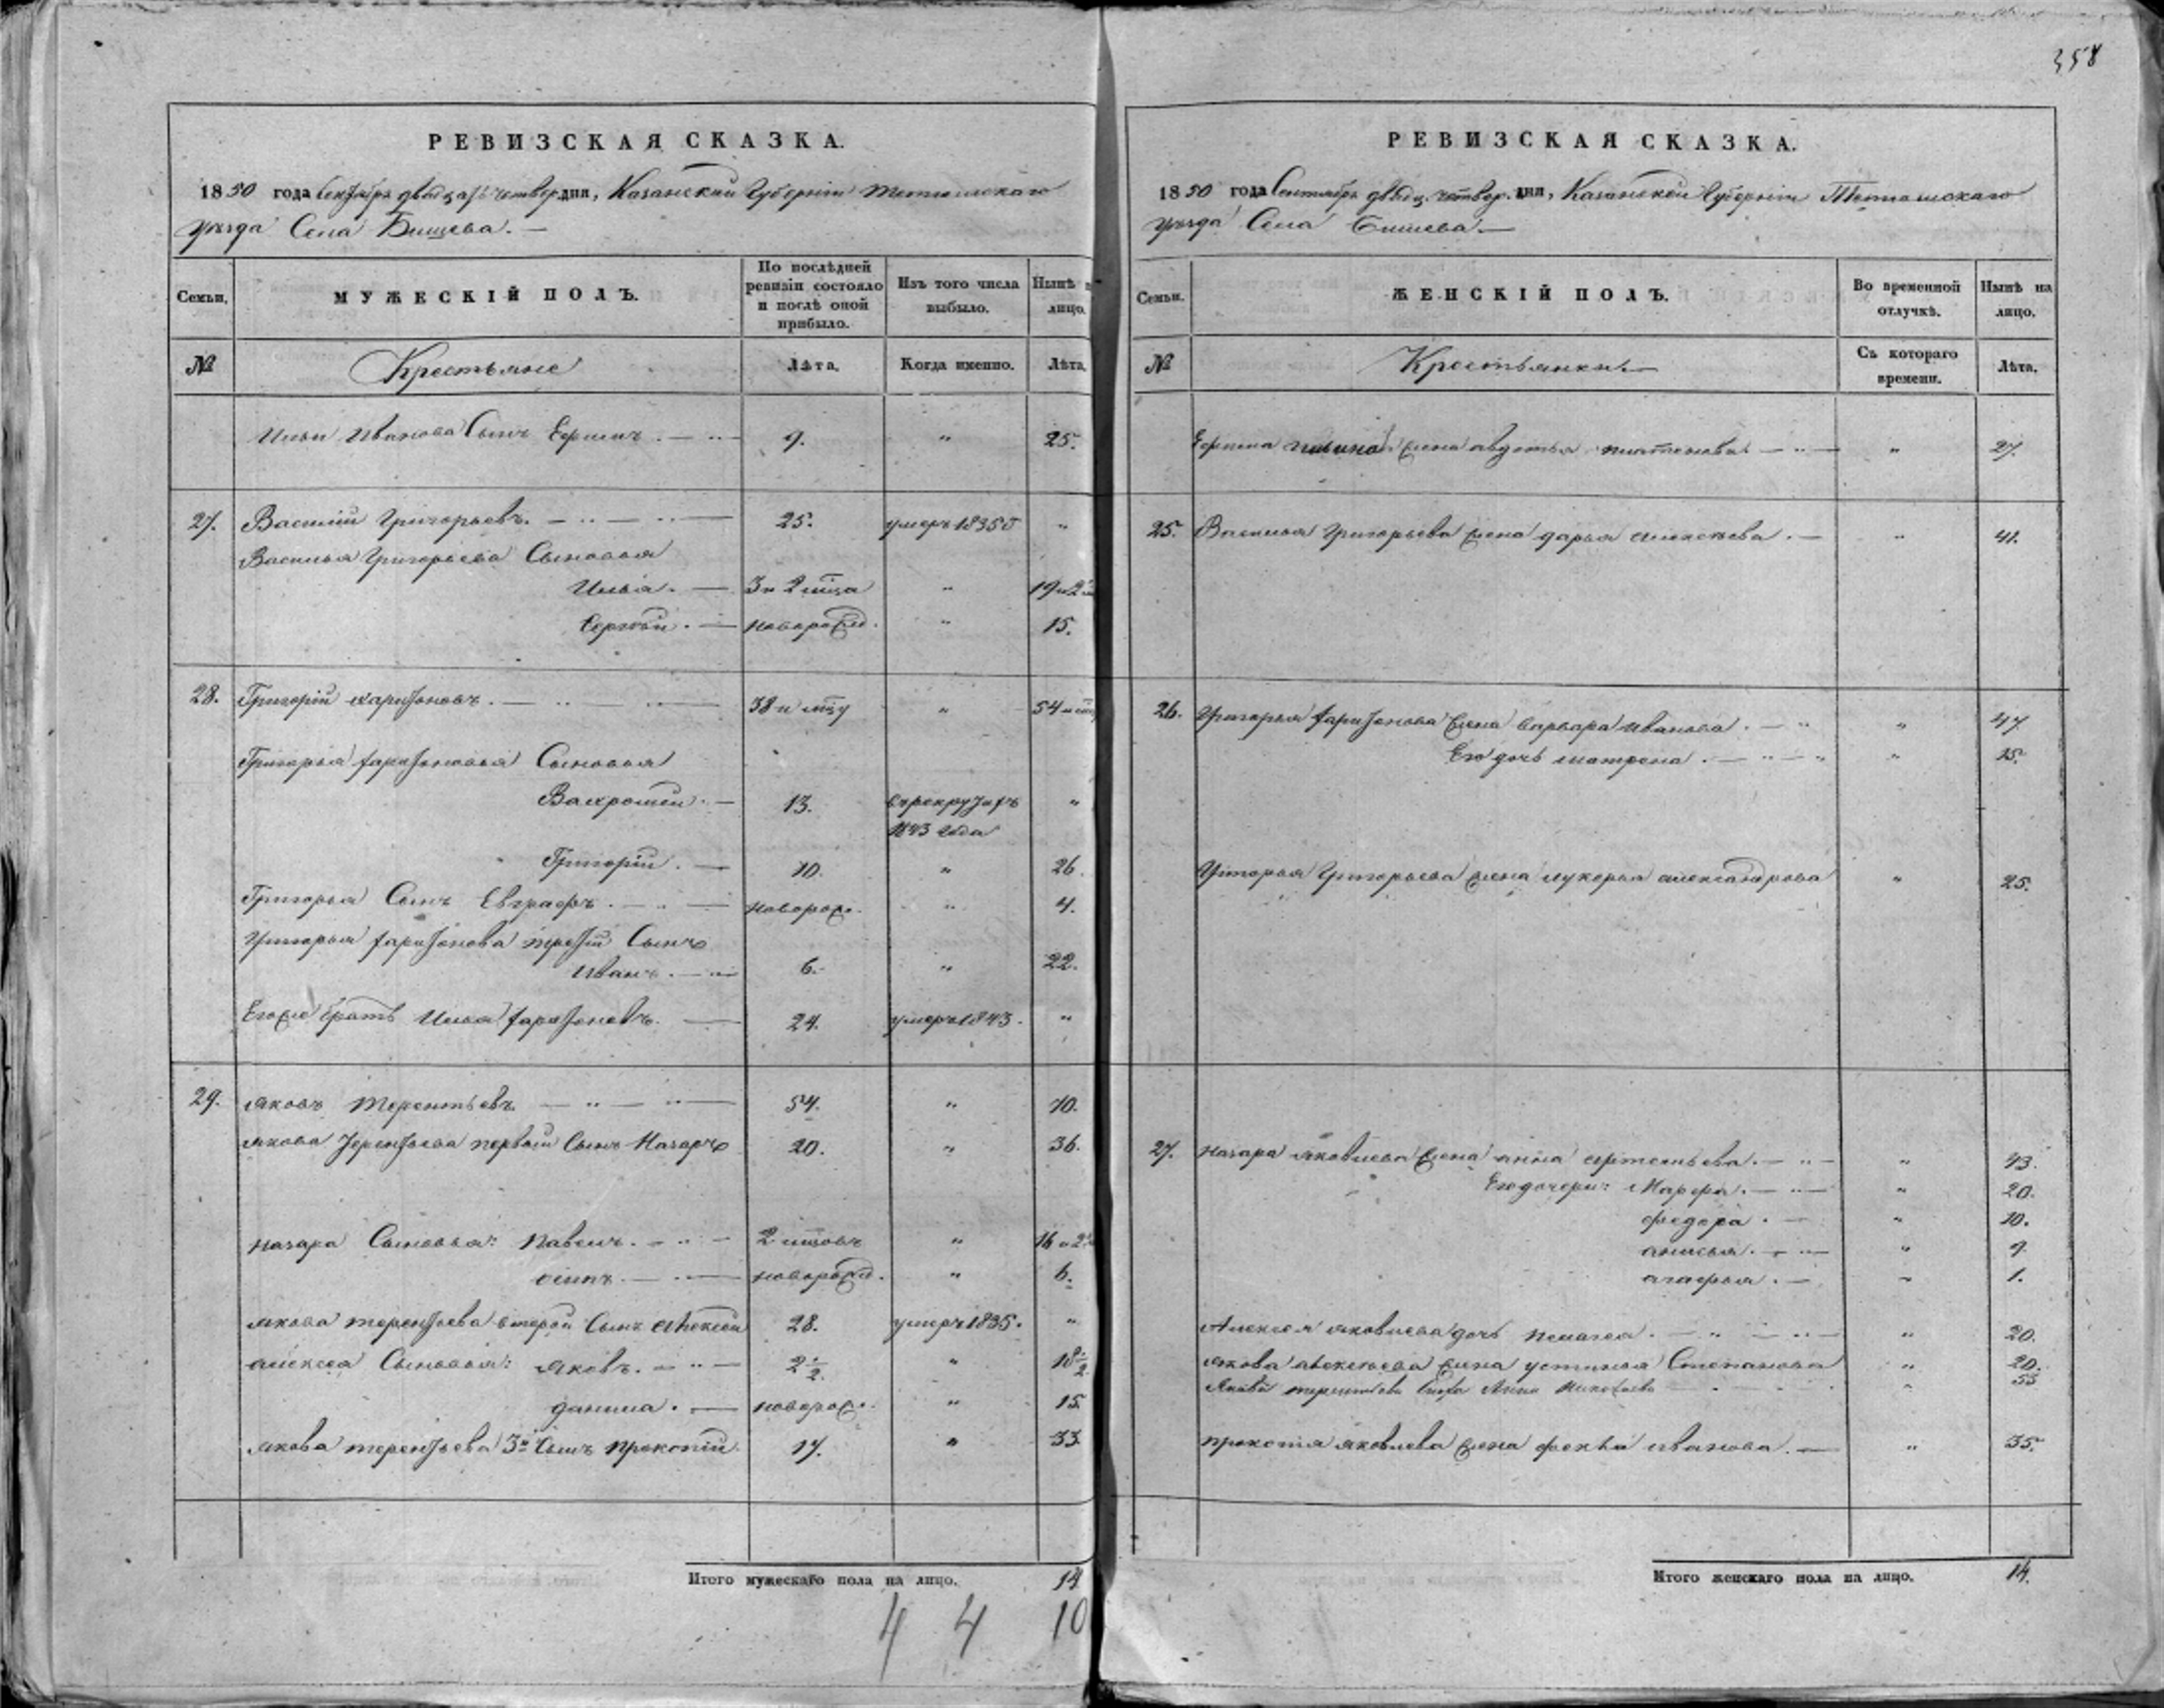 358
РЕВИЗСКАЯ СКАЗКА.
1850 года Сентября двадцать четвер. дня, Казанской Губернии Тетюшскаго
уезда Села Бишева. —
Семьи. МУЖЕСКІЙ ПОЛЪ. По послѣдней ревизіи состояло и послѣ оной прибыло. Изъ того числа выбыло. Нынѣ на лицо.
№ Крестьяне Лѣта. Когда именно. Лѣта.
Ильи Иванова Сынъ Ефимъ. — 9. " 25.
27. Василій Григорьевъ. — 25. умеръ 1835 "
Василья Григорьева Сыновья
Илья. — 3 и 2 мца " 19 и 2
Сергѣй. — новорожд. " 15.
28. Григорій Харитоновъ. — 38 и мцу " 54 и
Григорья Харитонова Сыновья
Вахромей. — 13. в рекрутахъ "
1843 года
Григорій. — 10. " 26.
Григорья Сынъ Евграфъ. — новорож. " 4.
Григорья Харитонова третій Сынъ
Иванъ. — 6. " 22.
Его же братъ Илья Харитоновъ. — 24. умеръ 1843. "
29. Яковъ Терентьевъ. — 54. " 70.
Якова Терентьева первый Сынъ Назаръ 20. " 36.
Назара Сыновья: Павелъ. — 2 мцовъ " 16 и 2
Осипъ. — новорожд. " 6.
Якова Терентьева второй Сынъ Алексей 28. умеръ 1835. "
Алексея Сыновья: Яковъ. — 2 1/2. " 18 1/2
Данила. — новорож. " 15.
Якова Терентьева 3й Сынъ Прокопій 17. " 33.
Итого мужескаго пола на лицо. 14
4 4 10
РЕВИЗСКАЯ СКАЗКА.
1850 года Сентября двадц. четвер. дня, Казанской Губерніи Тетюшскаго
уезда Села Бишева —
Семьи. ЖЕНСКІЙ ПОЛЪ. Во временной отлучкѣ. Нынѣ на лицо.
№ Крестьянки. — Съ котораго времени. Лѣта.
Ефима Ильина жена Авдотья — " 27.
25. Василья Григорьева жена Дарья Алексеева. — " 41.
26. Григорья Харитонова жена Варвара Иванова. — " 47.
Его дочь Матрена. — " 15.
Григорья Григорьева жена Лукерья Александрова " 25.
27. Назара Яковлева жена Анна Артемьева. — " 43.
Его дочери: Марфа. — " 20.
Федора. — " 10.
Анисья. — " 9.
Агафья. — " 1.
Алексея Яковлева дочь Пелагея. — " 20.
Якова Алексеева жена Устинья Степанова " 20.
Якова Терентьева Анна Николаева — " 55
Прокопія Яковлева жена Фекла Иванова. — " 35.
Итого женскаго пола на лицо. 14.